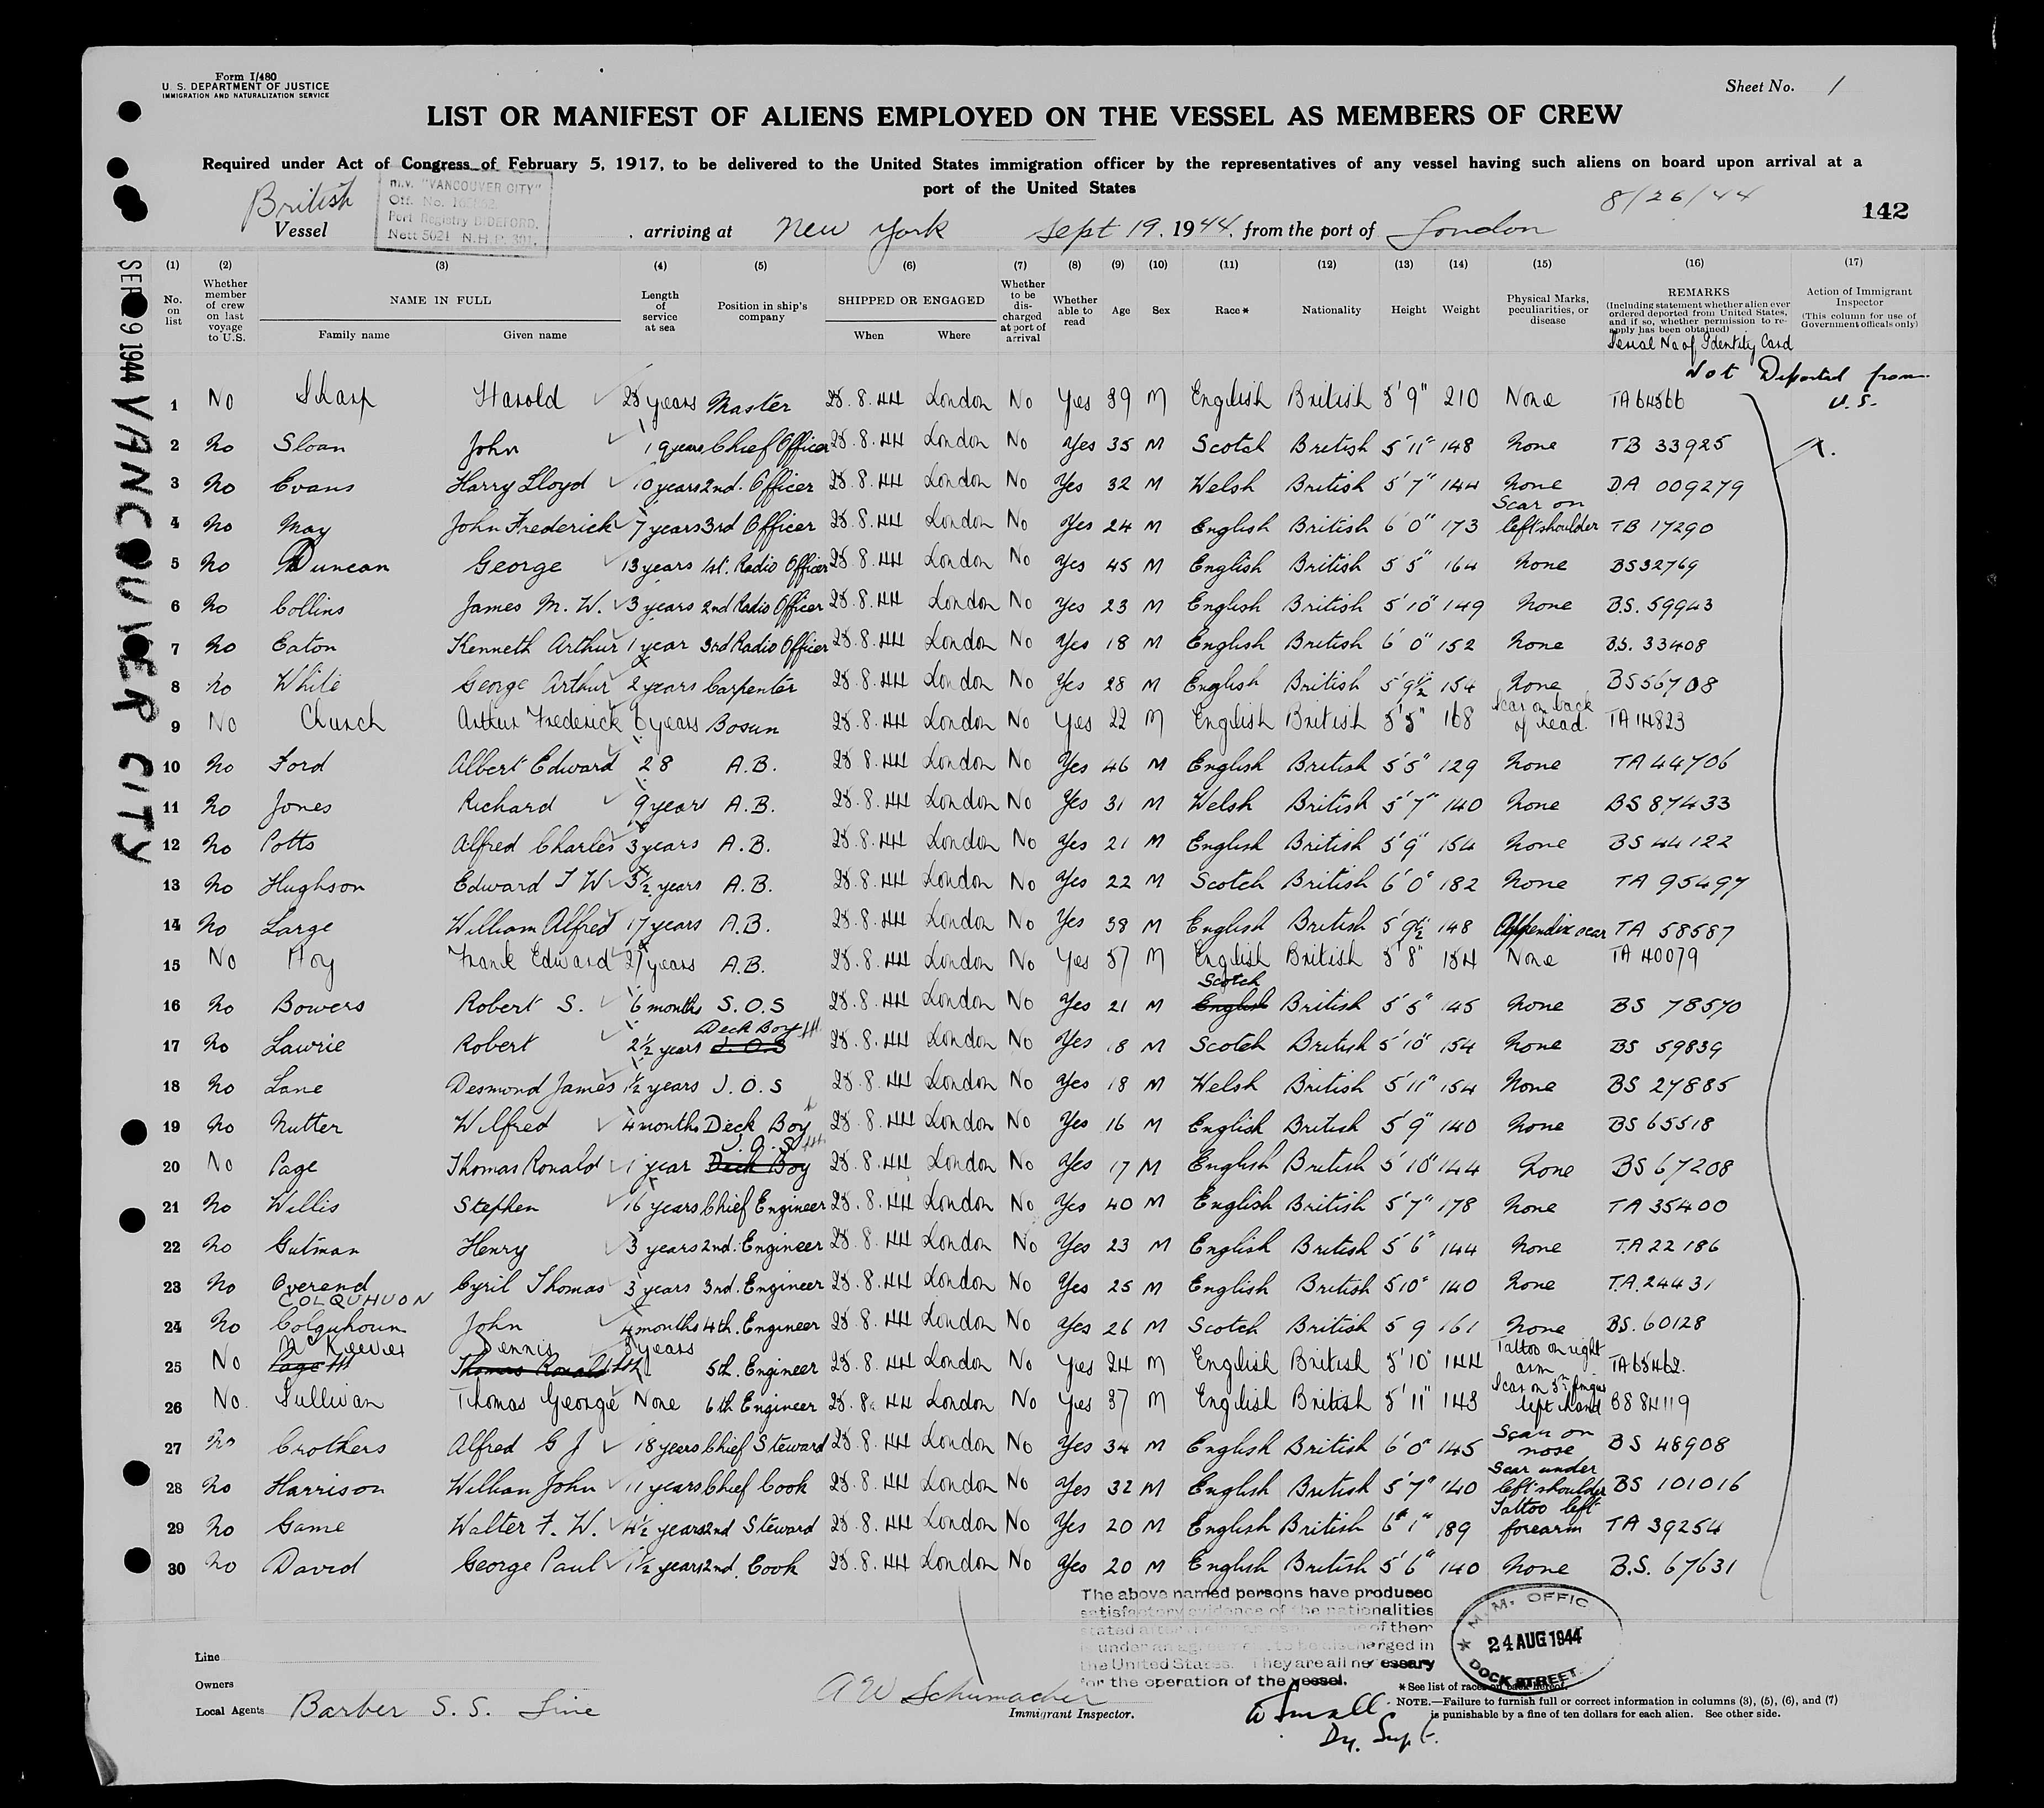 Form I/480
U. S. DEPARTMENT OF JUSTICE
IMMIGRATION AND NATURALIZATION SERVICE
Sheet No. 1
LIST OR MANIFEST OF ALIENS EMPLOYED ON THE VESSEL AS MEMBERS OF CREW
Required under Act of Congress of February 5, 1917, to be delivered to the United States immigration officer by the representatives of any vessel having such aliens on board upon arrival at a
port of the United States
8/26/44
142
m.v. "VANCOUVER CITY"
Off. No.
Port Registry BIDEFORD.
Nett 5021 N.H.P. 301.
British
Vessel arriving at New York Sept 19. 1944. from the port of London
SEP 19 1944 VANCOUVER CITY
(1) (2) (3) (4) (5) (6) (7) (8) (9) (10) (11) (12) (13) (14) (15) (16) (17)
No. on list
Whether member of crew on last voyage to U.S.
NAME IN FULL
Family name Given name
Length of service at sea
Position in ship's company
SHIPPED OR ENGAGED
When Where
Whether to be discharged at port of arrival
Whether able to read
Age
Sex
Race*
Nationality
Height
Weight
Physical Marks, peculiarities, or disease
REMARKS
(Including statement whether alien ever ordered deported from United States, and if so, whether permission to re-apply has been obtained)
Serial No of Identity Card
Action of Immigrant Inspector
(This column for use of Government officals only)
Not Deported from U.S.
1 No Sharp Harold 25 years Master 25.8.44 London No Yes 39 M English British 5'9" 210 None TA 64566
2 No Sloan John 19 years Chief Officer 25.8.44 London No Yes 35 M Scotch British 5'11" 148 None TB 33925
3 No Evans Harry Lloyd 10 years 2nd. Officer 25.8.44 London No Yes 32 M Welsh British 5'7" 144 None D.A 009279
4 No May John Frederick 7 years 3rd Officer 25.8.44 London No Yes 24 M English British 6'0" 173 Scar on left shoulder TB 17290
5 No Duncan George 13 years 1st. Radio Officer 25.8.44 London No Yes 45 M English British 5'5" 164 None BS32769
6 No Collins James M. W. 3 years 2nd Radio Officer 25.8.44 London No Yes 23 M English British 5'10" 149 None B.S. 59943
7 No Eaton Kenneth Arthur 1 year 3rd Radio Officer 25.8.44 London No Yes 18 M English British 6'0" 152 None B.S. 33408
8 No White George Arthur 2 years Carpenter 25.8.44 London No Yes 28 M English British 5'9½ 154 None BS56708
9 No Church Arthur Frederick 6 years Bosun 25.8.44 London No Yes 22 M English British 5'5" 168 Scar on back of head. TA 14823
10 No Ford Albert Edward 28 A.B. 25.8.44 London No Yes 46 M English British 5'5" 129 None TA 44706
11 No Jones Richard 9 years A.B. 25.8.44 London No Yes 31 M Welsh British 5'7" 140 None BS 87433
12 No Potts Alfred Charles 3 years A.B. 25.8.44 London No Yes 21 M English British 5'9" 154 None BS 44122
13 No Hughson Edward T W 3½ years A.B. 25.8.44 London No Yes 22 M Scotch British 6'0" 182 None TA 95497
14 No Large William Alfred 17 years A.B. 25.8.44 London No Yes 38 M English British 5'9½ 148 Appendix scar TA 58587
15 No Hoy Frank Edward 27 years A.B. 25.8.44 London No Yes 57 M English British 5'8" 154 None TA 40079
16 No Bowers Robert S. 6 months S.O.S 25.8.44 London No Yes 21 M English Scotch British 5'5" 145 None BS 78570
17 No Lawrie Robert 2½ years J.O.S Deck Boy 25.8.44 London No Yes 18 M Scotch British 5'10" 154 None BS 59839
18 No Lane Desmond James 1½ years J.O.S 25.8.44 London No Yes 18 M Welsh British 5'11" 154 None BS 27885
19 No Nutter Wilfred 4 months Deck Boy 25.8.44 London No Yes 16 M English British 5'9" 140 None BS 65518
20 No Page Thomas Ronald 1 year Deck Boy J.O.S 25.8.44 London No Yes 17 M English British 5'10" 144 None BS 67208
21 No Willis Stephen 16 years Chief Engineer 25.8.44 London No Yes 40 M English British 5'7" 178 None TA 35400
22 No Gutman Henry 3 years 2nd. Engineer 25.8.44 London No Yes 23 M English British 5'6" 144 None T.A 22186
23 No Overend Cyril Thomas 3 years 3rd. Engineer 25.8.44 London No Yes 25 M English British 5 10" 140 None T.A. 24431
COLQUHUON
24 No Colquhoun John 4 months 4th. Engineer 25.8.44 London No Yes 26 M Scotch British 5 9 161 None BS. 60128
25 No Page McKeever Thomas Ronald Dennis 3 years 5th. Engineer 25.8.44 London No Yes 24 M English British 5'10" 144 Tattoo on right arm TA 65462.
26 No. Sullivan Thomas George None 6th Engineer 25.8.44 London No Yes 37 M English British 5'11" 143 Scar on 3rd finger left hand BS 84119
27 No Crothers Alfred G J 18 years Chief Steward 25.8.44 London No Yes 34 M English British 6'0" 145 Scar on nose BS 48908
28 No Harrison William John 11 years Chief Cook 25.8.44 London No Yes 32 M English British 5'7" 140 Scar under left shoulder BS 101016
29 No Game Walter F. W. 4½ years 2nd Steward 25.8.44 London No Yes 20 M English British 6'1" 189 Tattoo left forearm TA 39254
30 No David George Paul 1½ years 2nd. Cook 25.8.44 London No Yes 20 M English British 5'6" 140 None B.S. 67631
The above named persons have produced
satisfactory evidence of the nationalities
stated of them
is under an agreement to be discharged in
the United States. They are all necessary
for the operation of the vessel.
M. M. OFFIC
24 AUG 1944
DOCK STREET.
Line
Owners
Local Agents Barber S. S. Line
A W Schumacher
Immigrant Inspector.
W Small
Dy. Supt.
*See list of races on back hereof.
NOTE.—Failure to furnish full or correct information in columns (3), (5), (6), and (7)
is punishable by a fine of ten dollars for each alien. See other side.